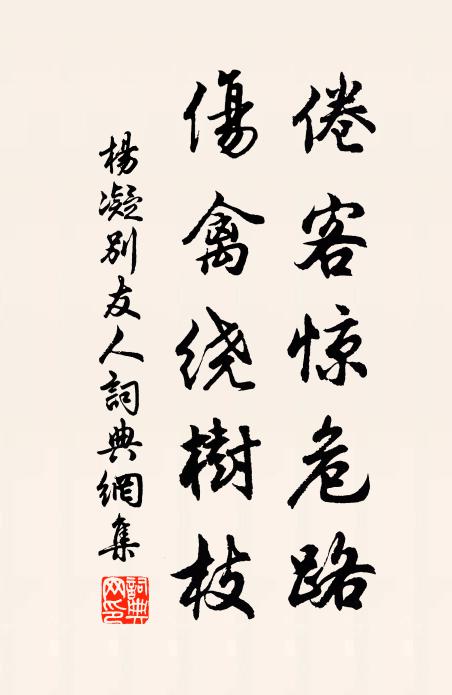 倦客惊危路
傷禽绕樹枝
楊凝别友人詞典網集
詞典
网印